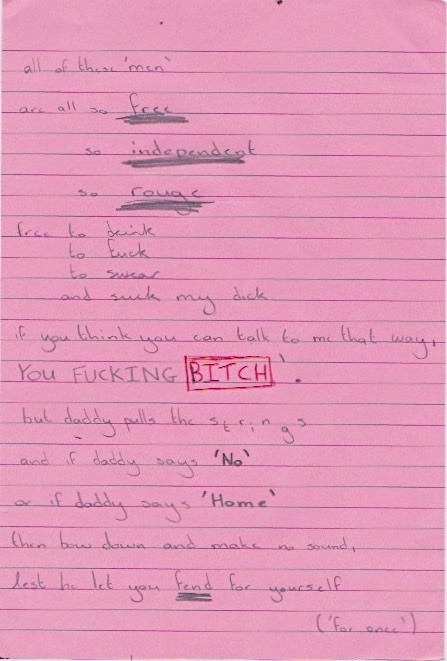 all of these 'men'
are all so free
so independent
so rouge
free to drink
to fuck
to swear
and suck my dick
if you think you can talk to me that way,
YOU FUCKING BITCH'.
but daddy pulls the strings
and if daddy says 'No'
or if daddy says 'Home'
then bow down and make no sound,
lest he let you fend for yourself
('for once')